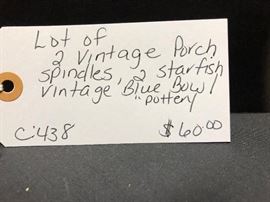 Lot of
2 Vintage Porch
spindles, 2 starfish
vintage Blue Bowl
"pottery
C:438
$60.00